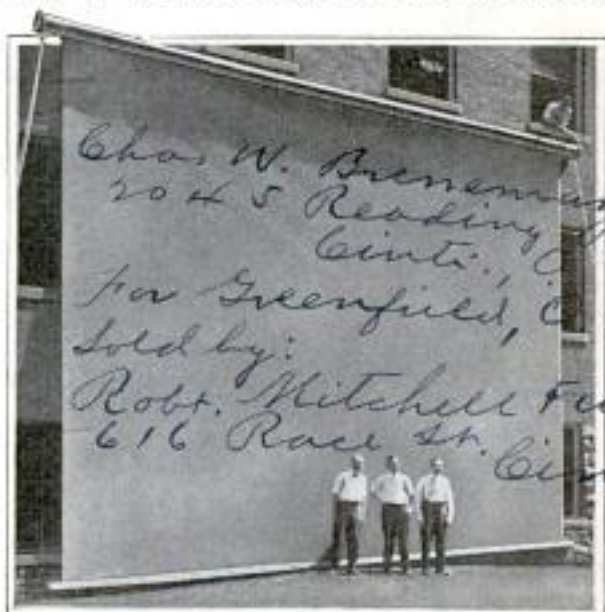 Chas. W. Breneman
2045 Reading
Cinti., O
For Greenfield, O
Sold by:
Robt. Mitchell Fu
616 Race St.
Cin